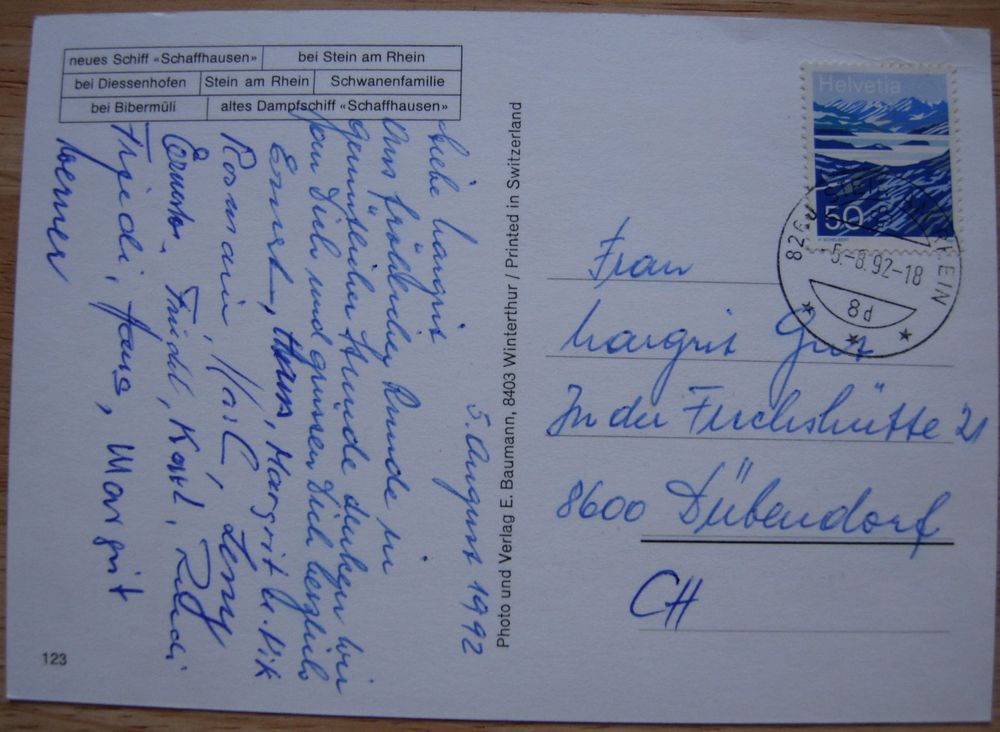 neues Schiff «Schaffhausen» bei Stein am Rhein
bei Diessenhofen Stein am Rhein Schwanenfamilie
bei Bibermüli altes Dampfschiff «Schaffhausen»
5. August 1992
Liebe Margrit
Aus fröhlicher Runde in
gemütlicher Stunde denken wir
von Dich und grüssen Dich herzlich
Ernst, Hans, Margrit u.
Rosmarie, Karl, Leny
Ernst, Fridel, Karl, Ruedi
Friedi, Hans, Margrit
Werner
123
Photo und Verlag E. Baumann, 8403 Winterthur / Printed in Switzerland
Helvetia
50
8260 STEIN AM RHEIN
-5.-8.92-18
8d
Frau
Margrit Gut
In der Fuchshütte 21
8600 Dübendorf
CH